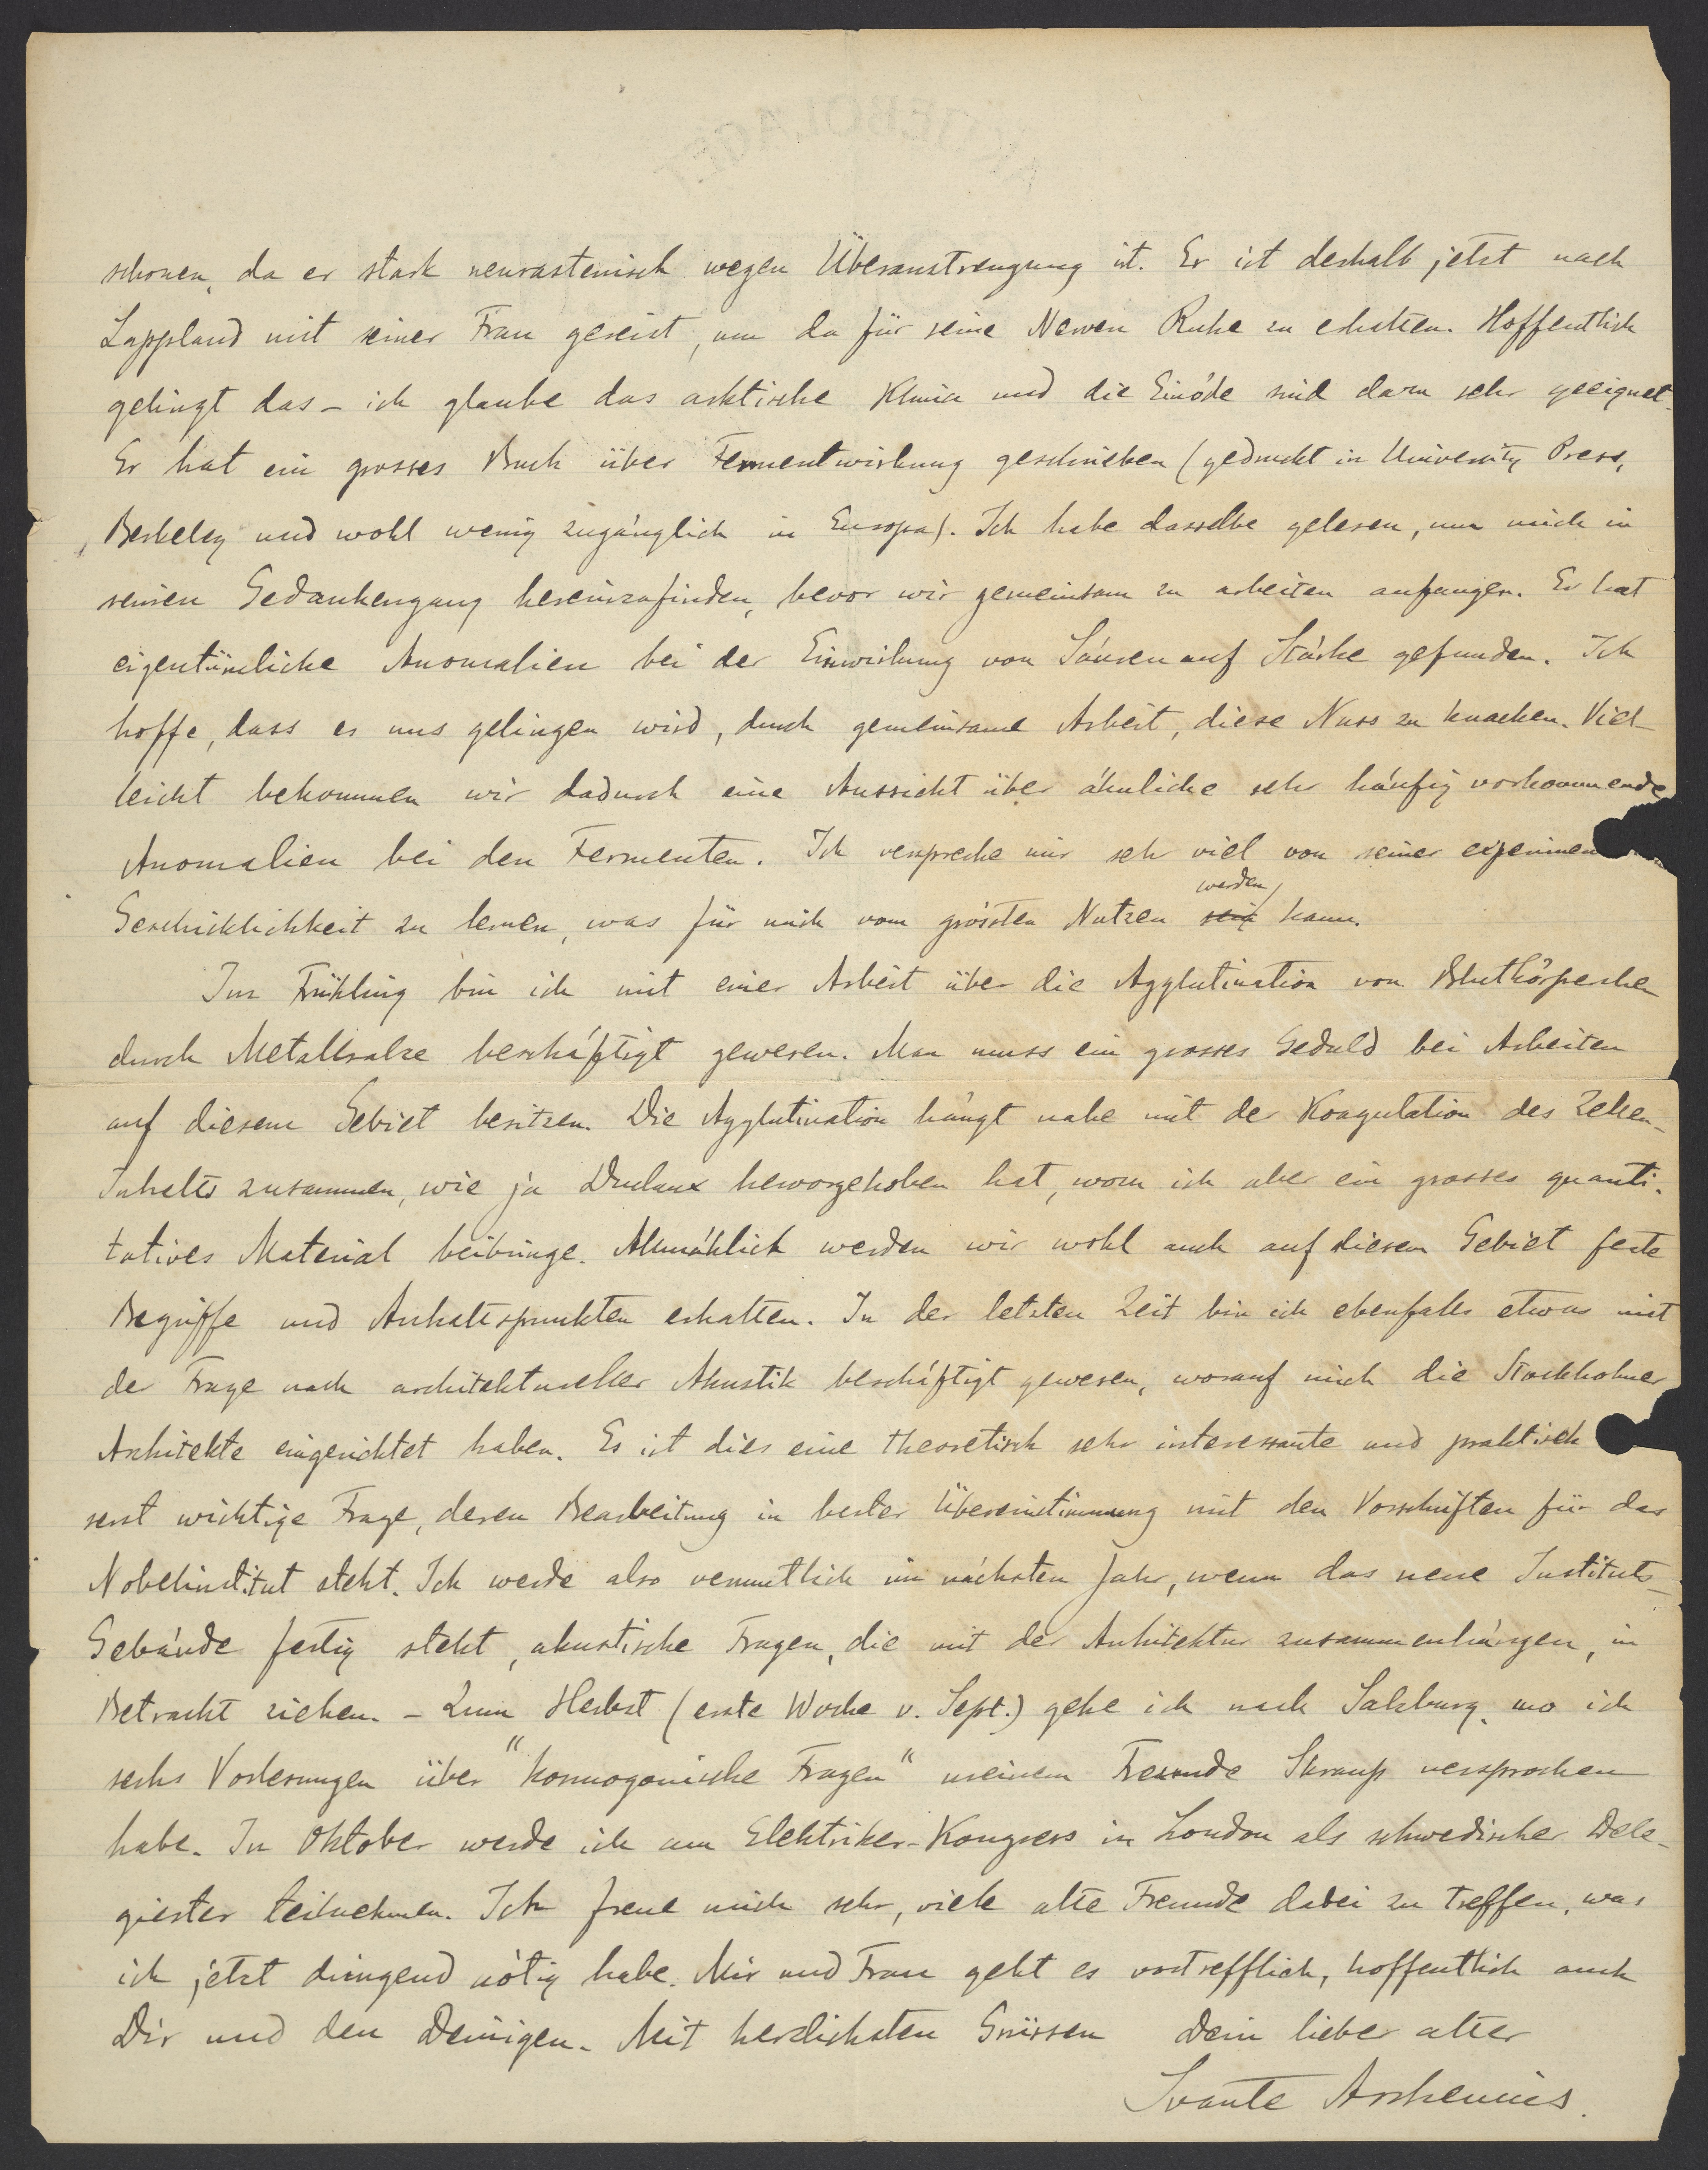 schonen, da er stark neurastenisch wegen Überanstrengung ist. Er ist deshalb jetzt nach
Lappland mit seiner Frau gereist, um da für seine Nerven Ruhe zu erhalten. Hoffentlich
gelingt das – ich glaube das arktische Klima und die Einöde sind dazu sehr geeignet.
Er hat ein grosses Buch über Fermentwirkung geschrieben (gedruckt in University Press,
Berkeley und wohl wenig zugänglich in Europa). Ich habe dasselbe gelesen, um mich in
seinen Gedankengang hereinzufinden, bevor wir gemeinsam zu arbeiten anfangen. Er hat
eigentümliche Anomalien bei der Einwirkung von Säuren auf Stärke gefunden. Ich
hoffe, dass es uns gelingen wird, durch gemeinsame Arbeit, diese Nuss zu knacken. Viel-
leicht bekommen wir dadurch eine Aussicht über ähnliche sehr häufig vorkommende
Anomalien bei den Fermenten. Ich verspreche mir sehr viel von seiner experimen
werden
Geschicklichkeit zu lernen, was für mich vom grössten Nutzen sein kann.
Im Frühling bin ich mit einer Arbeit über die Agglutination von Blutkörperchen
durch Metallsalze beschäftigt gewesen. Man muss ein grosses Geduld bei Arbeiten
auf diesem Gebiet besitzen. Die Agglutination hängt nahe mit der Koagulation des Zellen-
Inhalts zusammen, wie ja Duclaux hervorgehoben hat, wozu ich aber ein grosses quanti-
tatives Material beibringe. Allmählich werden wir wohl auch auf diesem Gebiet feste
Begriffe und Anhaltspunkten erhalten. In der letzten Zeit bin ich ebenfalls etwas mit
der Frage nach architektureller Akustik beschäftigt gewesen, worauf mich die Stockholmer
Architekte eingerichtet haben. Es ist dies eine theoretisch sehr interessante und praktisch
serst wichtige Frage, deren Bearbeitung in bester Übereinstimmung mit den Vorschriften für das
Nobelinstitut steht. Ich werde also vermutlich im nächsten Jahr, wenn das neue Instituts-
Gebäude fertig steht, akustische Fragen, die mit der Architektur zusammenhängen, in
Betracht ziehen. – Zum Herbst (erste Woche v. Sept.) gehe ich nach Salzburg, wo ich
sechs Vorlesungen über "kosmogonische Fragen" meinem Freunde Skraup versprochen
habe. In Oktober werde ich am Elektriker-Kongress in London als schwedischer Dele-
gierter teilnehmen. Ich freue mich sehr, viele alte Freunde dabei zu treffen, was
ich jetzt dringend nötig habe. Mir und Frau geht es vortrefflich, hoffentlich auch
Dir und den Deinigen. Mit herzlichsten Grüssen Dein lieber alter
Svante Arrhenius.